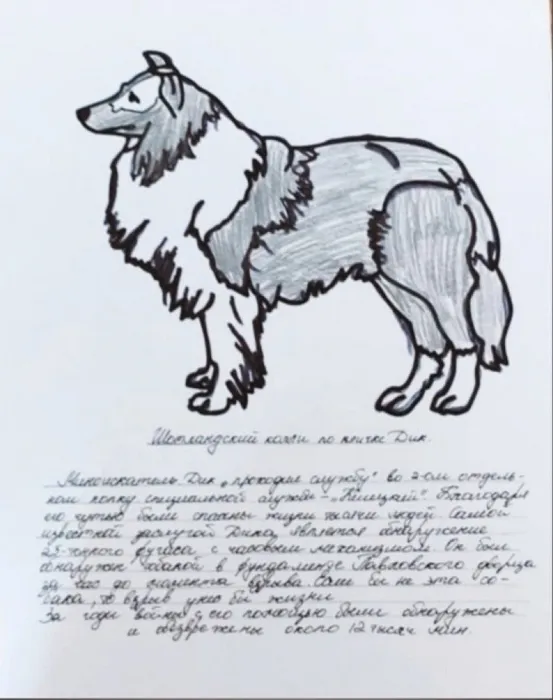 Шотландский колли по кличке Дик.
Миноискатель Дик „проходил службу" во 2-ом отдель-
ном полку специальной службы – „Келецкий". Благодаря
его чутью были спасены жизни тысячи людей. Самой
известной заслугой Дика, является обнаружение
2,5-тонного фугаса, с часовым механизмом. Он был
обнаружен собакой в фундаменте Павловского дворца
за час до момента взрыва. Если бы не эта со-
бака, то взрыв унес бы жизни
За годы войны с его помощью были обнаружены
и обезврежены около 12 тысяч мин.